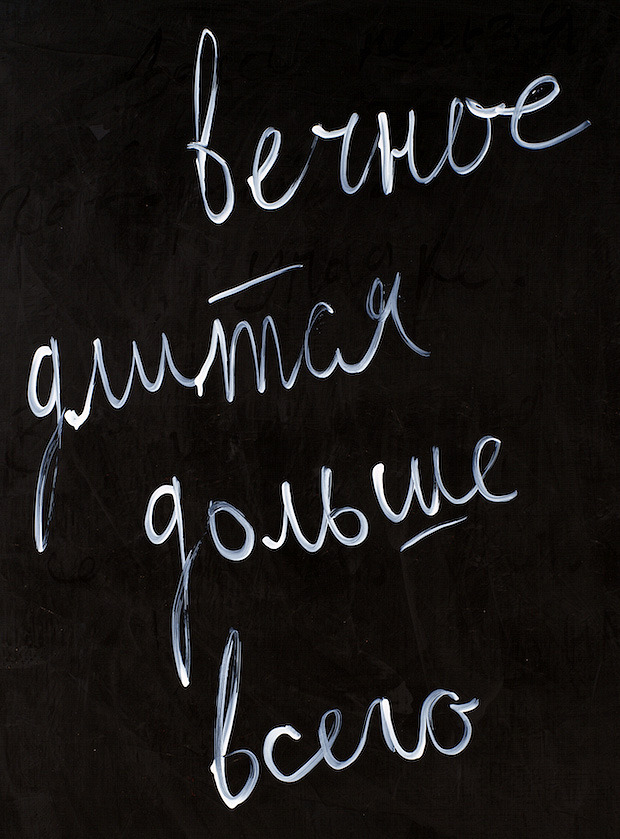 вечное
длится
дольше
всего